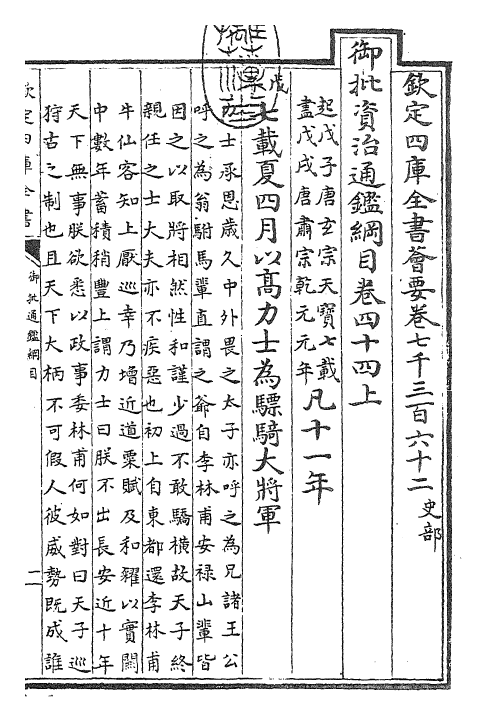 欽定四庫全書薈要卷七千三百六十二 史部
御批資治通鑑綱目卷四十四上
起戊子唐玄宗天寶七載
盡戊戌唐肅宗乾元元年
凡十一年
七載夏四月以髙力士為驃騎大將軍
力士承恩歲久中外畏之太子亦呼之為兄諸王公
呼之為翁駙馬輩直謂之爺自李林甫安禄山輩皆
因之以取將相然性和謹少過不敢驕橫故天子終
親任之士大夫亦不疾惡也初上自東都還李林甫
牛仙客知上厭巡幸乃增近道粟賦及和糴以實關
中數年蓄積稍豐上謂力士曰朕不出長安近十年
天下無事朕欲悉以政事委林甫何如對曰天子巡
狩古之制也且天下大柄不可假人彼威勢既成誰
欽定四庫全書
御批通鑑綱目
一